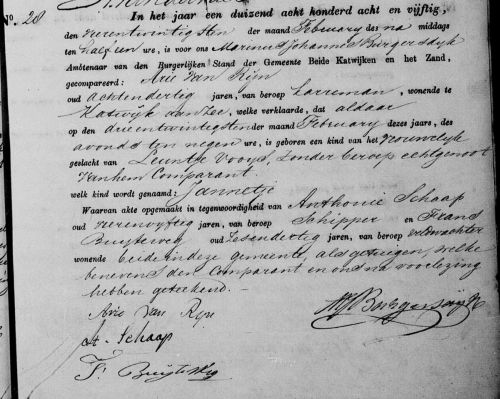 No. 28
In het jaar een duizend acht honderd acht en vijftig,
den vierentwintigsten der maand February des na middags
ten half een ure, is voor ons Marinus Johannes Burgersdyk
Ambtenaar van den Burgerlijken Stand der Gemeente Beide Katwijken en het Zand,
gecompareerd: Arie van Rijn
oud Achtendertig jaren, van beroep Karreman, wonende te
Katwyk aan Zee, welke verklaarde, dat aldaar
op den drieentwintigsten der maand February dezes jaars, des
avonds ten negen ure, is geboren een kind van het vrouwelijk
geslacht van Leuntje Vooys, zonder beroep echtgenoot
van hem Comparant.
welk kind wordt genaamd: Jannetje
Waarvan akte opgemaakt in tegenwoordigheid van Anthonie Schaap
oud vierenvyftig jaren, van beroep Schipper en Frans
Buyteweg oud Zesendertig jaren, van beroep veldwachter
wonende beide in deze gemeente, als getuigen, welke
benevens den Comparant en ons na voorlezing
hebben geteekend.
Arie van Ryn
At. Schaap
F. Buyteweg
MJ Burgersdyk